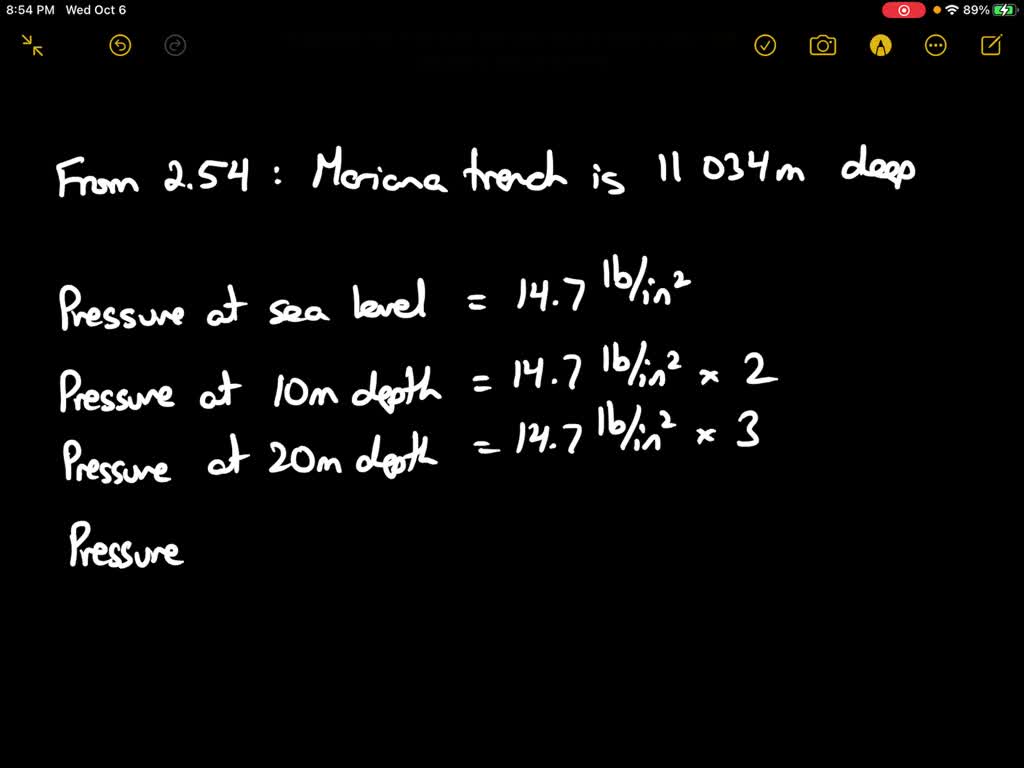 8:54 PM Wed Oct 6 89%
From 2.54 : Mariana trench is 11 034m deep
Pressure at sea level = 14.7 lb/in²
Pressure at 10m depth = 14.7 lb/in² × 2
Pressure at 20m depth = 14.7 lb/in² × 3
Pressure